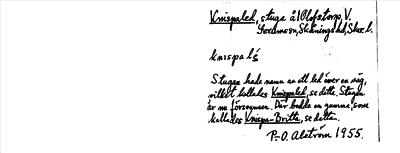 Knispaled, stuga å l Olofstorp, V.
Skånings hd, Skar. l.
knispalé
Stugan hade namn av ett led över en väg,
vilket kallades Knispaled, se detta. Stugan
är nu försvunnen. Där bodde en gumma, som
kallades Knispa-Britta, se detta.
P-O. Alström 1955.